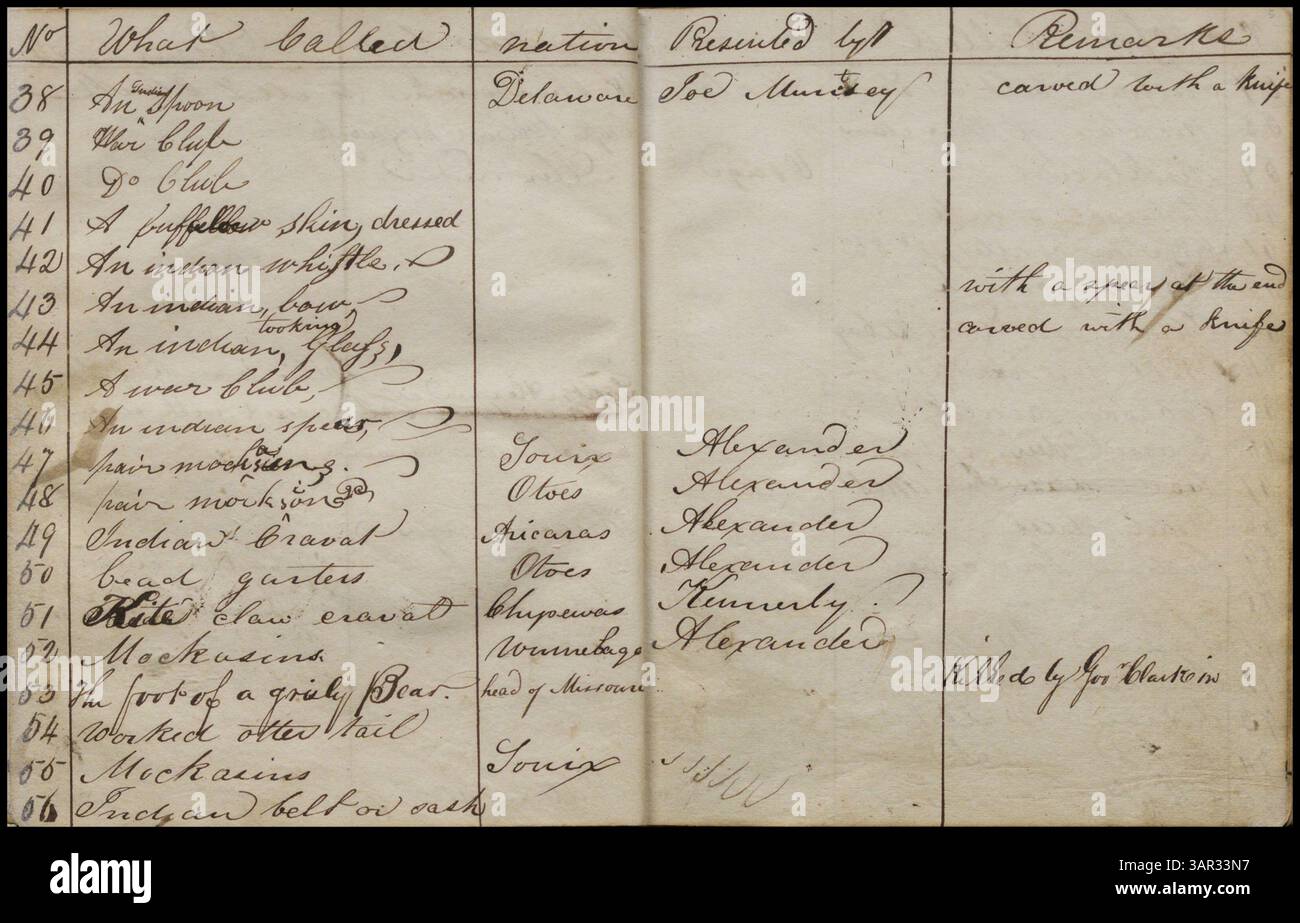 No What Called nation Presented by Remarks
38 An Indian Spoon Delaware Joe Muncey carved with a knife
39 War Club
40 Do Club
41 A buffellow skin, dressed
42 An indian whistle,
43 An indian, bow, with a spear at the end
44 An indian, looking Glass, carved with a knife
45 A war Club,
46 An indian spear,
47 pair mocksans. Souix Alexander
48 pair mocksons Otoes Alexander
49 Indian Cravat Aricaras Alexander
50 bead garters Otoes Alexander
51 Kite claw cravat Chipewas Kennerly
52 Mockasins Winnebago Alexander
53 The foot of a grisly Bear. head of Missouri Killed by Gov Clark in
54 Worked otter tail
55 Mockasins Souix
56 Indian belt or sash
alamy
Image ID: 3AR33N7
www.alamy.com